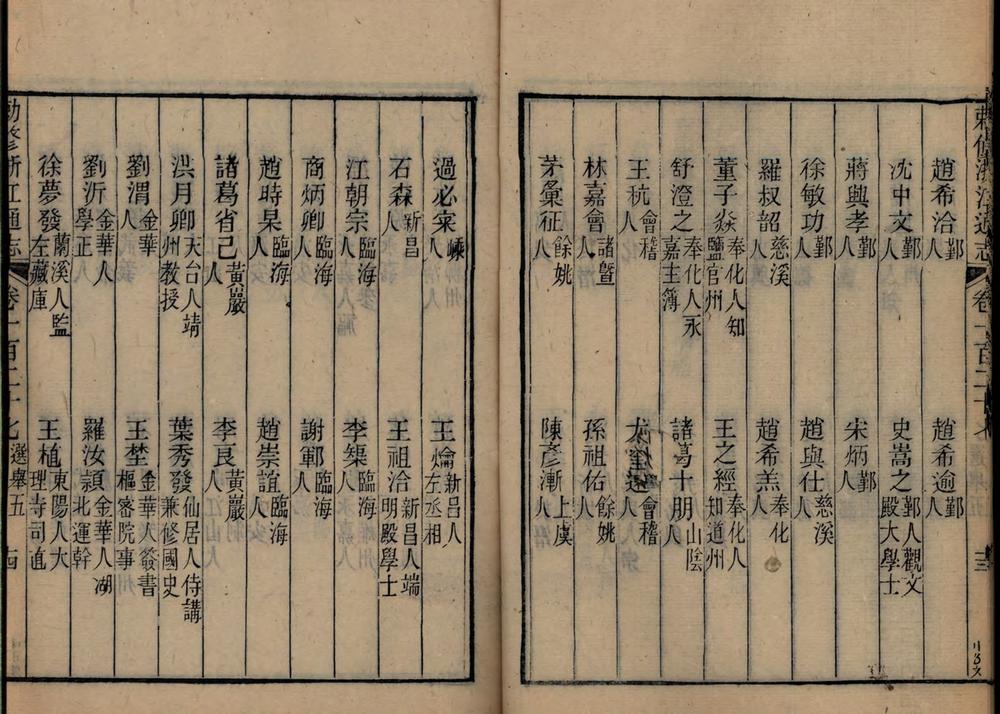 敕修浙江通志 卷一百二十七 十三
趙希洽鄞人 趙希逾鄞人
沈中文鄞人 史嵩之鄞人觀文殿大學士
蔣興孝鄞人 宋炳鄞人
徐敏功鄞人 趙與仕慈溪人
羅叔韶慈溪人 趙希羔奉化人
董子焱奉化人知鹽官州 王之經奉化人知道州
舒澄之奉化人永嘉主簿 諸葛十朋山陰人
王杭會稽人 會稽人
林嘉會諸暨人 孫祖佑餘姚人
茅彙征餘姚人 陳彥漸上虞人
過必宷嵊人 王爚新昌人左丞相
石森新昌人 王祖洽新昌人端明殿學士
江朝宗臨海人 李榘臨海人
商炳卿臨海人 謝鄆臨海人
趙時杲臨海人 趙崇誼臨海人
諸葛省己黃巖人 李良黃巖人
洪月卿天台人靖州教授 葉秀發仙居人侍講兼修國史
劉渭金華人 王埜金華人簽書樞密院事
劉沂金華人學正 羅汝穎金華人湖北運幹
徐夢發蘭溪人監左藏庫 王植東陽人大理寺司直
敕修浙江通志 卷一百二十七 選舉五 十四